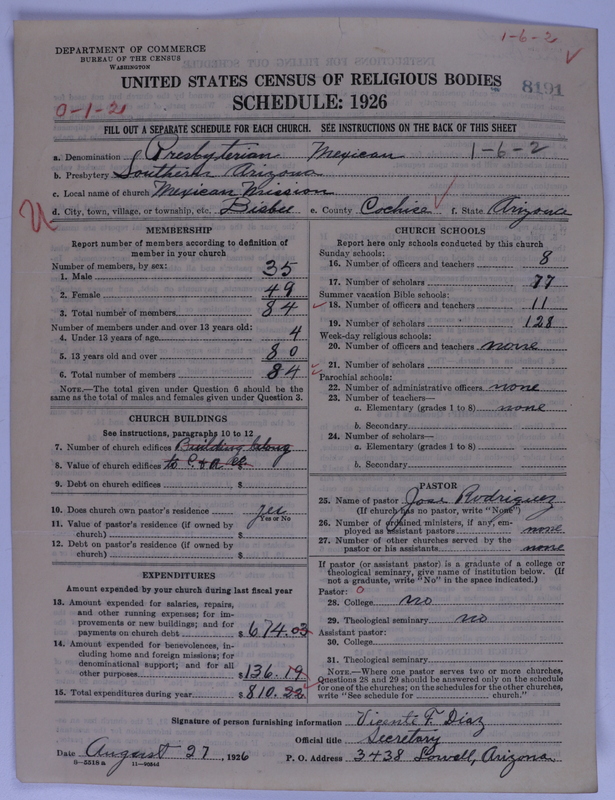 1-6-2
DEPARTMENT OF COMMERCE
BUREAU OF THE CENSUS
WASHINGTON
UNITED STATES CENSUS OF RELIGIOUS BODIES
8191
SCHEDULE: 1926
0-1-21
FILL OUT A SEPARATE SCHEDULE FOR EACH CHURCH. SEE INSTRUCTIONS ON THE BACK OF THIS SHEET
a. Denomination Presbyterian Mexican 1-6-2
b. Presbytery Southern Arizona
c. Local name of church Mexican Mission
d. City, town, village, or township, etc. Bisbee e. County Cochise f. State Arizona
MEMBERSHIP
Report number of members according to definition of
member in your church
Number of members, by sex:
1. Male 35
2. Female 49
3. Total number of members 84
Number of members under and over 13 years old:
4. Under 13 years of age 4
5. 13 years old and over 80
6. Total number of members 84
NOTE.—The total given under Question 6 should be
the same as the total of males and females given under Question 3.
CHURCH BUILDINGS
See instructions, paragraphs 10 to 12
7. Number of church edifices Building belong
8. Value of church edifices to
9. Debt on church edifices $
10. Does church own pastor's residence yes
Yes or No
11. Value of pastor's residence (if owned by
church) $
12. Debt on pastor's residence (if owned by
church) $
EXPENDITURES
Amount expended by your church during last fiscal year
13. Amount expended for salaries, repairs,
and other running expenses; for im-
provements or new buildings; and for
payments on church debt $ 674.03
14. Amount expended for benevolences, in-
cluding home and foreign missions; for
denominational support; and for all
other purposes $ 136.19
15. Total expenditures during year $ 810.22
CHURCH SCHOOLS
Report here only schools conducted by this church
Sunday schools:
16. Number of officers and teachers 8
17. Number of scholars 77
Summer vacation Bible schools:
18. Number of officers and teachers 11
19. Number of scholars 128
Week-day religious schools:
20. Number of officers and teachers none
21. Number of scholars
Parochial schools:
22. Number of administrative officers none
23. Number of teachers—
a. Elementary (grades 1 to 8) none
b. Secondary
24. Number of scholars—
a. Elementary (grades 1 to 8)
b. Secondary
PASTOR
25. Name of pastor Jose Rodriguez
(If church has no pastor, write "None")
26. Number of ordained ministers, if any, em-
ployed as assistant pastors none
27. Number of other churches served by the
pastor or his assistants none
If pastor (or assistant pastor) is a graduate of a college or
theological seminary, give name of institution below. (If
not a graduate, write "No" in the space indicated.)
Pastor: 0
28. College no
29. Theological seminary no
Assistant pastor:
30. College
31. Theological seminary
NOTE.—Where one pastor serves two or more churches,
Questions 28 and 29 should be answered only on the schedule
for one of the churches; on the schedules for the other churches,
write "See schedule for church."
Signature of person furnishing information Vicente F. Diaz
Official title Secretary
Date August 27, 1926 P. O. Address 3438 Lowell, Arizona
8-5518 a